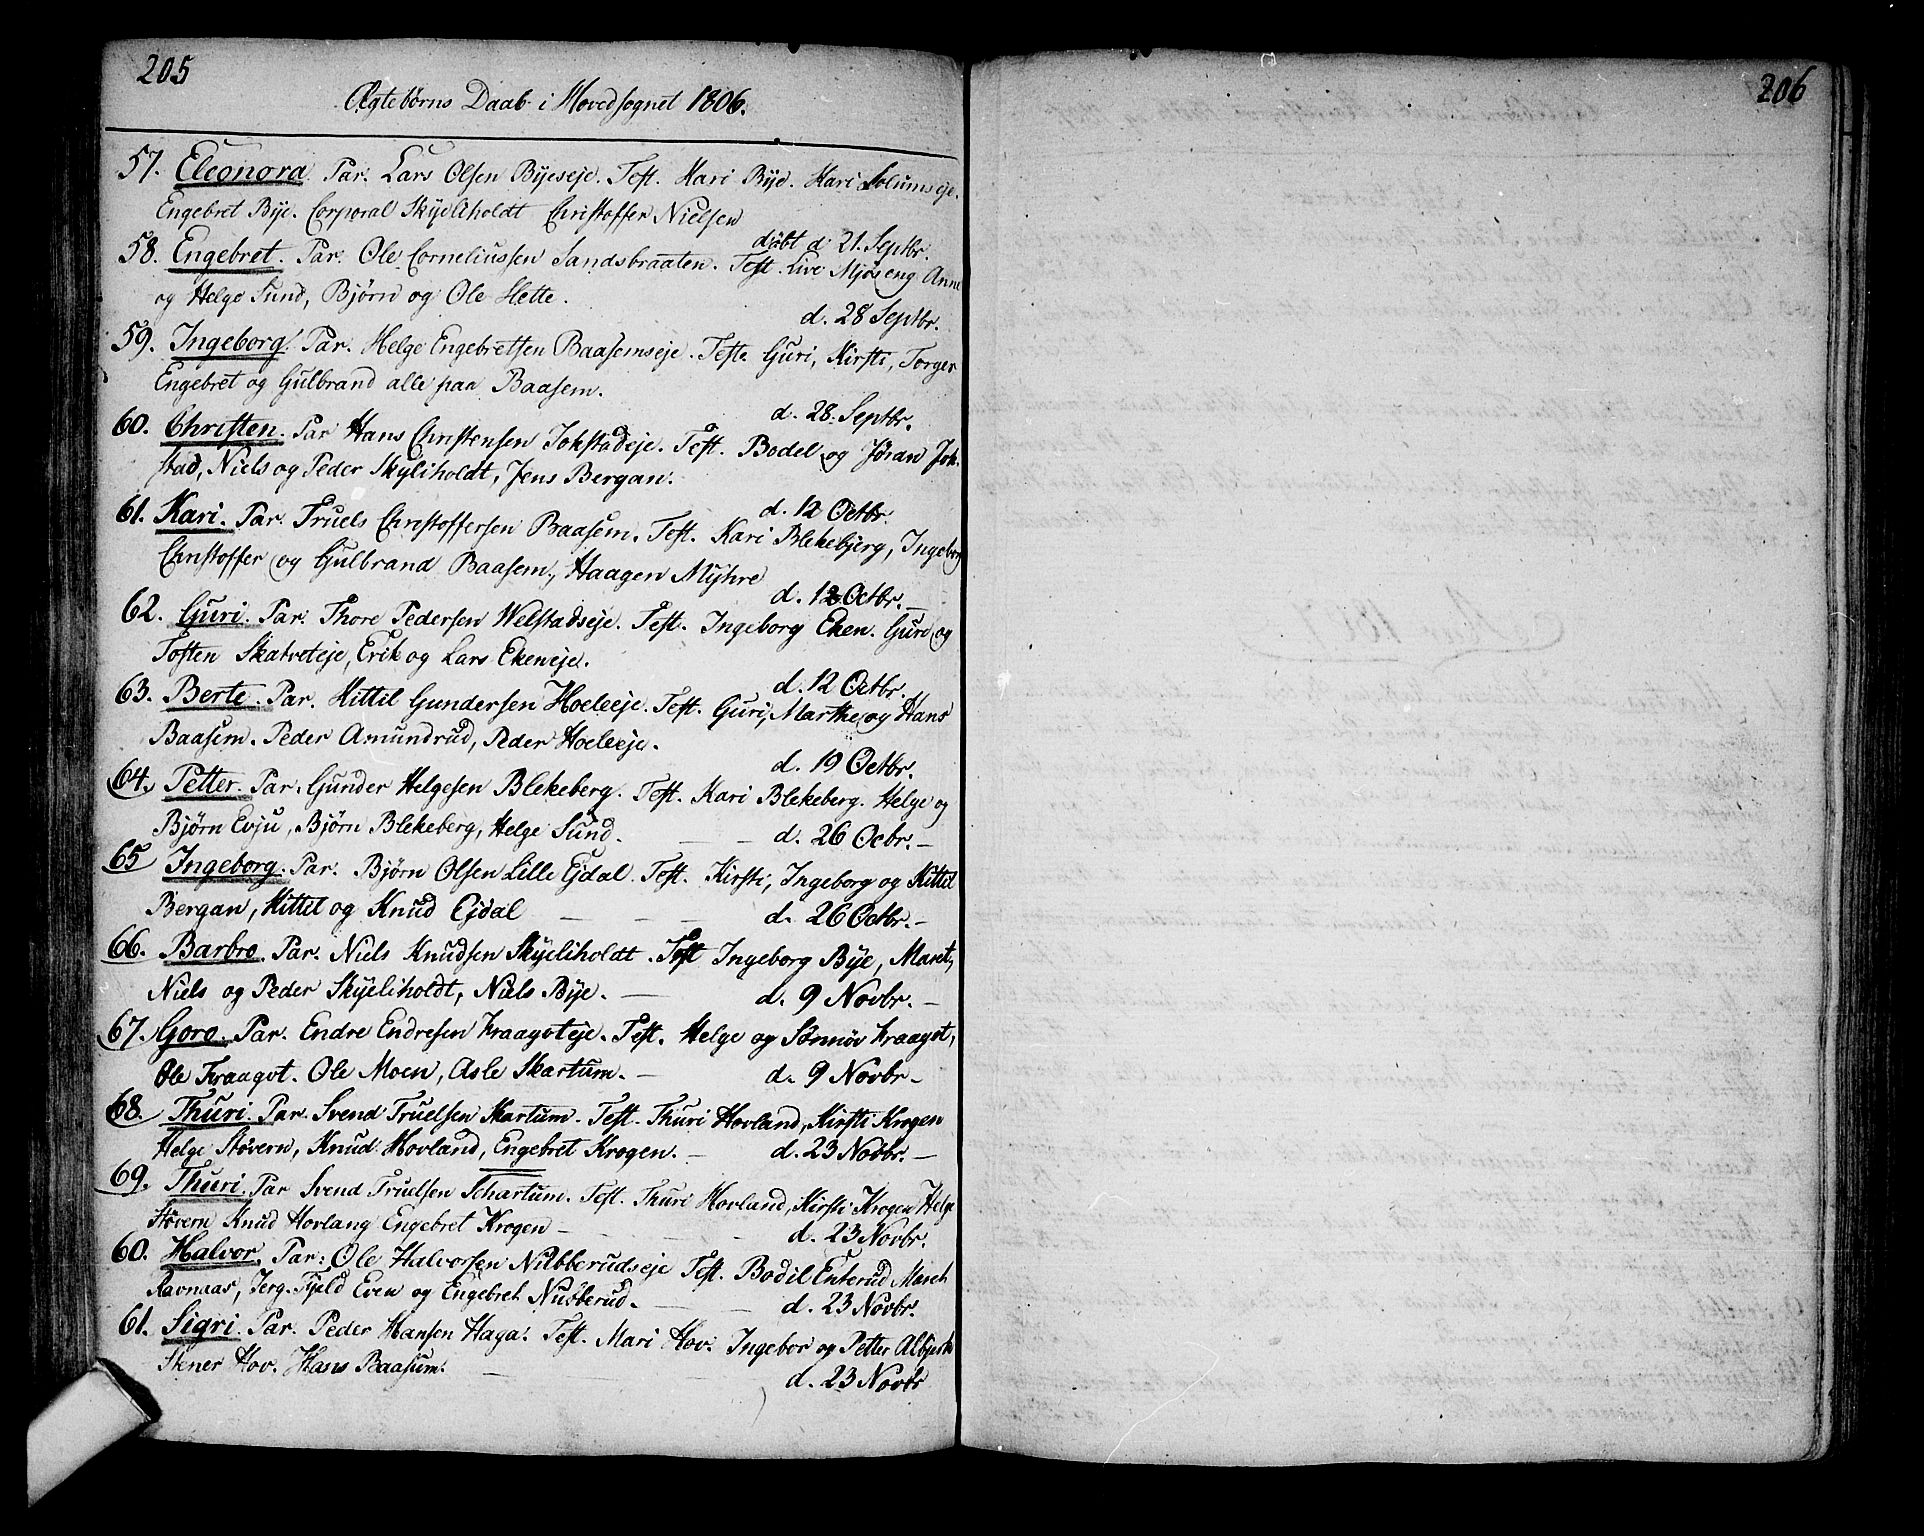 205
Ægtebørns Daab i Hovedsognet 1806.
57. Eleonora. Par. Lars Olsen Byeseje. Test. Kari Bye. Kari Solumseje.
Engebret Bye. Corporal Skyeliholdt Christoffer Nielsen
døbt d. 21. Septbr.
58. Engebret. Par. Ole Corneliussen Sandsbraaten. Test. Live Mjøseng Anne
og Helge Sund, Bjørn og Ole Slette.
d. 28 Septbr.
59. Ingeborg. Par. Helge Engebretsen Baasemseje. Test. Guri, Kirsti, Torger
Engebret og Gulbrand alle paa Baasem.
d. 28. Septbr.
60. Christen. Par Hans Christensen Jokstadeje. Test. Bodel og Jøran Jok-
stad, Niels og Peder Skyliholdt, Jens Bergan.
d. 12 Octbr.
61. Kari. Par. Truels Christoffersen Baasem. Test. Kari Blekebjerg, Ingeborg
Christoffer og Gulbrand Baasem, Haagen Myhre
d. 12 Octbr.
62. Guri. Par. Thore Pedersen Welstadseje. Test. Ingeborg Eken. Guri og
Tosten Skatveteje, Erik og Lars Ekeneje.
d. 12 Octbr.
63. Berte. Par. Kittil Gundersen Hoeleeje. Test. Guri, Marthe og Hans
Baasem. Peder Amundrud, Peder Hoeleeje.
d. 19 Octbr.
64. Petter. Par. Gunder Helgesen Blekeberg. Test. Kari Blekeberg. Helge og
Bjørn Evju, Bjørn Blekeberg, Helge Sund. d. 26 Ocbr.
65 Ingeborg. Par. Bjørn Olsen Lille Ejdal. Test. Kirsti, Ingeborg og Kittil
Bergan, Kittil og Knud Ejdal d. 26 Octbr.
66. Barbro. Par. Niels Knudsen Skyeliholdt. Test Ingeborg Bye, Maret,
Niels og Peder Skyeliholdt, Niels Bye. d. 9 Novbr.
67. Goro. Par. Endre Endresen Kraagvteje. Test. Helge og Sønnøv Kraagvt,
Ole Kraagvt. Ole Moen, Asle Skartum. d. 9 Novbr
68. Thuri. Par. Svend Truelsen Skartum. Test. Thuri Hovland, Kirsti Krogen
Helge Støvern, Knud Hovland, Engebret Krogen. d. 23 Novbr.
69. Thuri. Par Svend Truelsen Schartum. Test. Thuri Hovland, Kirsti Krogen Helge
Støvern Knud Hovlang Engebret Krogen d. 23 Novbr.
60. Halvor. Par. Ole Halvorsen Nubberudseje Test. Bodil Enterud Mareh
Ravnaas, Jerg. Fjeld Even og Engebret Nubberud. d. 23 Novbr.
61. Sigri. Par. Peder Hansen Haga. Test. Mari Hov. Ingebor og Petter Albjerk
Stener Hov. Hans Baasum. d. 23 Novbr
206